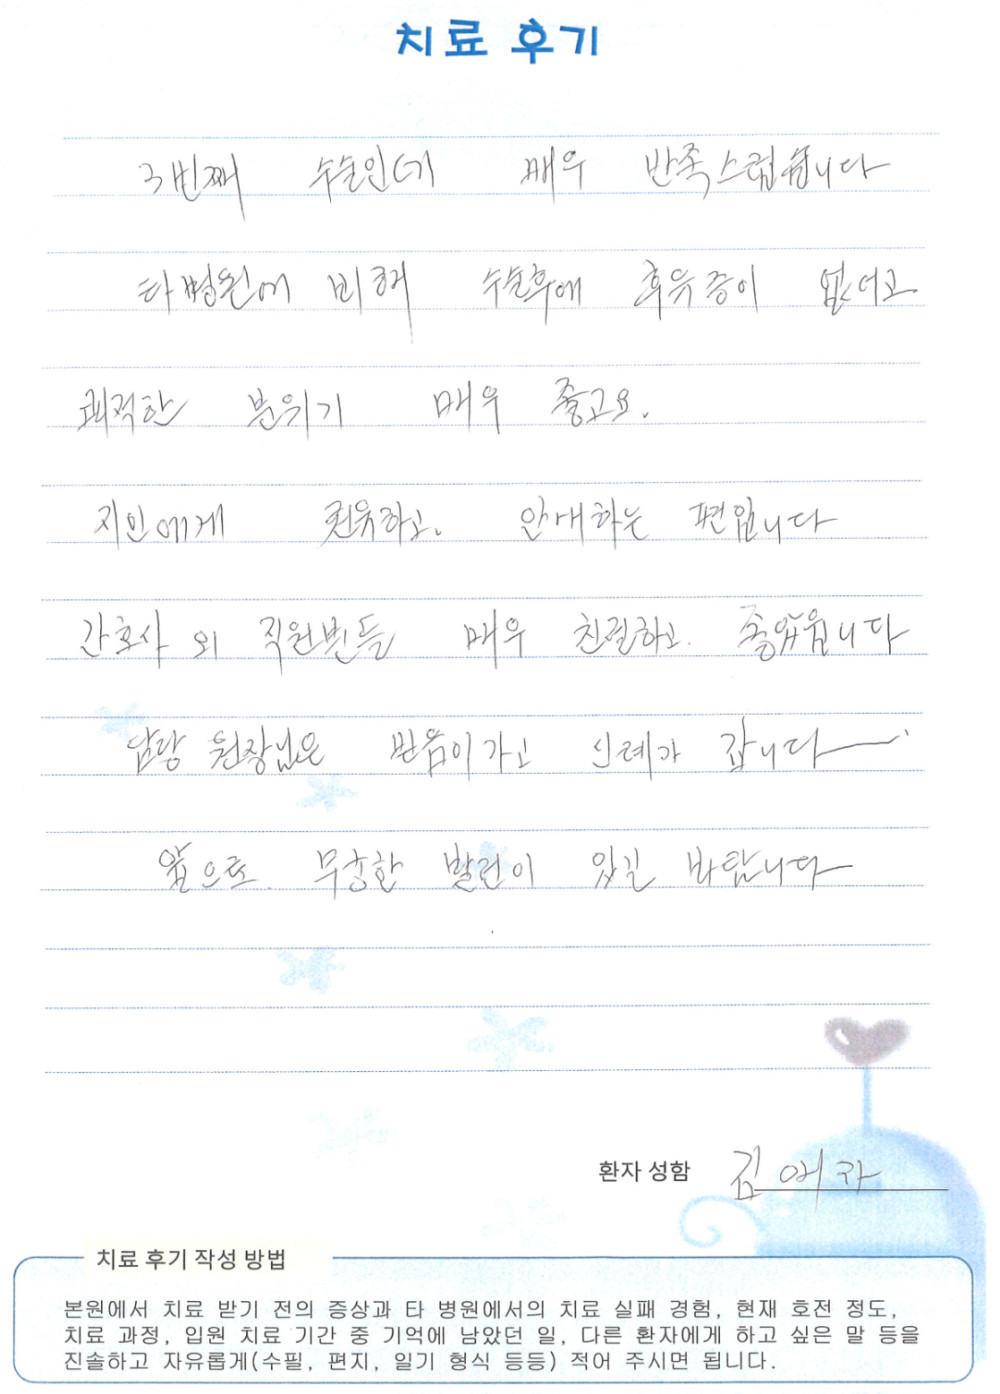 치료 후기
3번째 수술인데 매우 반족스럽습니다
타병원에 비해 수술후에 후유증이 없어고
쾌적한 분위기 매우 좋고요.
지인에게 권유하고. 안내하는 편입니다
간호사 외 직원분들 매우 친절하고. 좋았읍니다
담당 원장님은 믿음이가고 신뢰가 갑니다
앞으로. 무궁한 발전이 있길 바랍니다
환자 성함 김애자
치료 후기 작성 방법
본원에서 치료 받기 전의 증상과 타 병원에서의 치료 실패 경험, 현재 호전 정도,
치료 과정, 입원 치료 기간 중 기억에 남았던 일, 다른 환자에게 하고 싶은 말 등을
진솔하고 자유롭게(수필, 편지, 일기 형식 등등) 적어 주시면 됩니다.